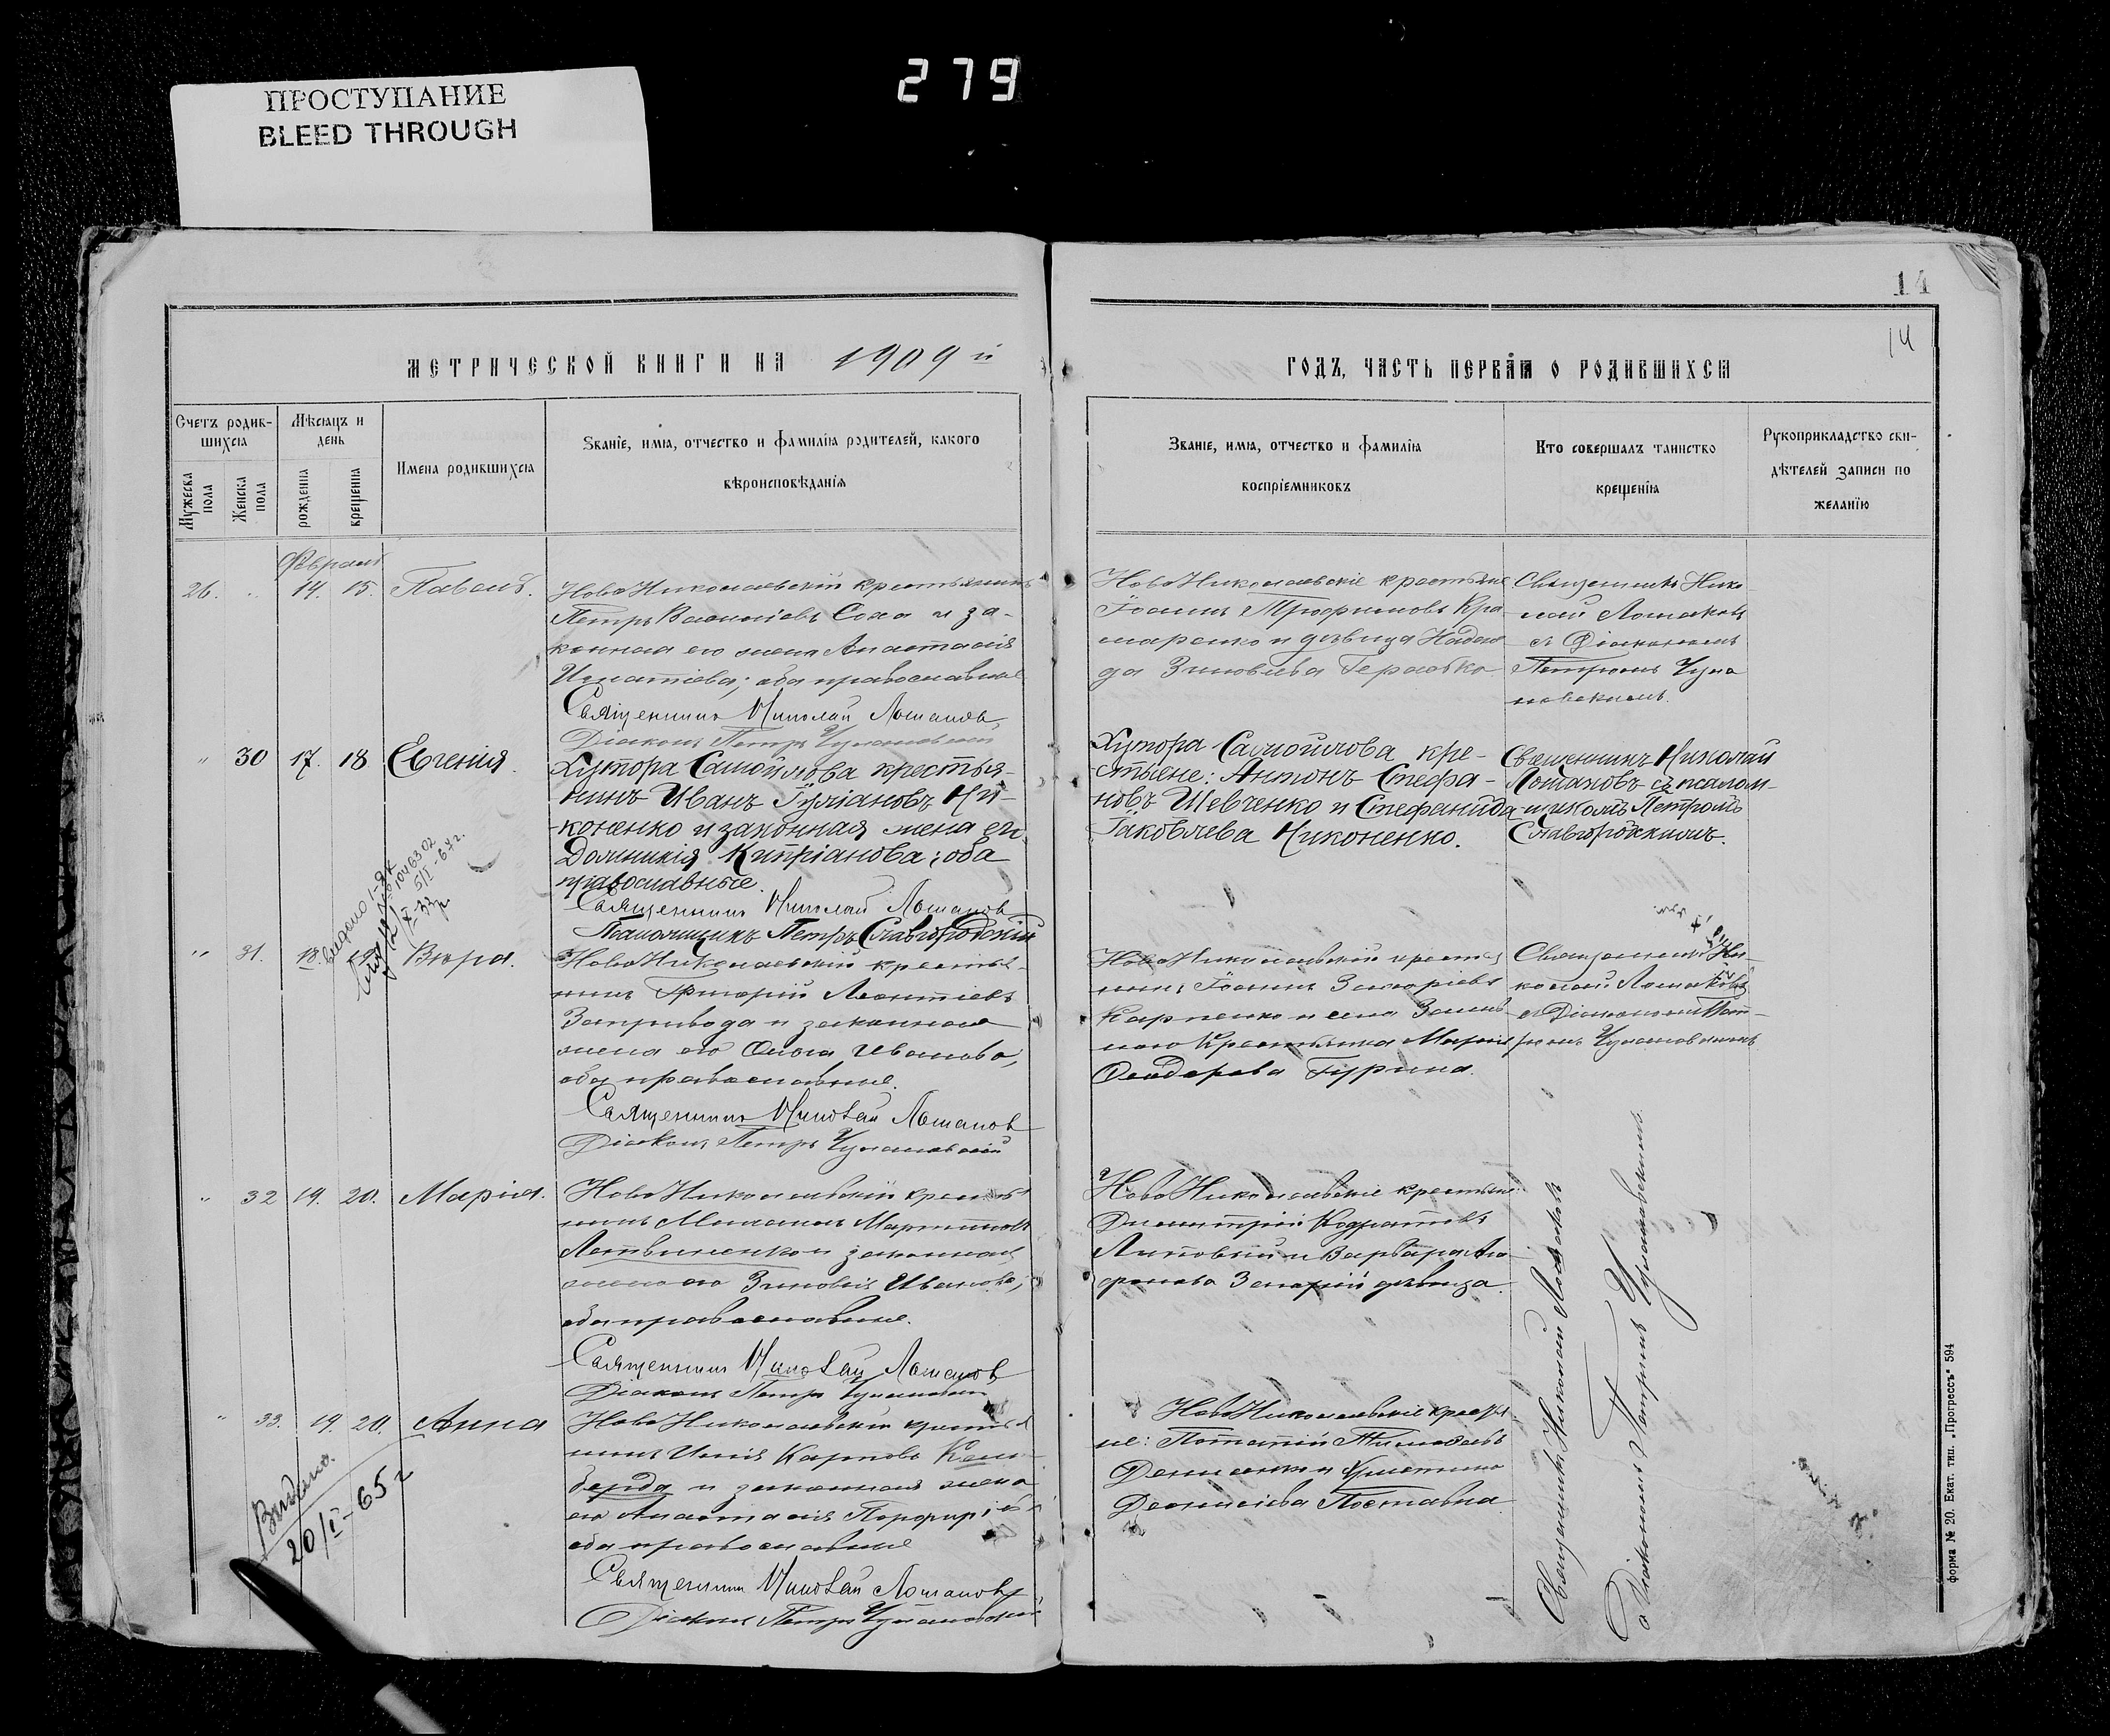 279
ПРОСТУПАНИЕ
BLEED THROUGH
14
14
МЕТРИЧЕСКОЙ КНИГИ НА 1909 й
ГОДЪ, ЧАСТЬ ПЕРВАЯ О РОДИВШИХСЯ
Счетъ родив-
шихся
Мужеска пола
Женска пола
Мѣсяцъ и
день
рожденія
крещенія
Имена родившихся
Званіе, имя, отчество и фамилія родителей, какого
вѣроисповѣданія
Званіе, имя, отчество и фамилія
воспріемниковъ
Кто совершалъ таинство
крещенія
Рукоприкладство сви-
дѣтелей записи по
желанію
Февраль
26. " 14. 15. Павелъ.
НовоНиколаевскій крестьянинъ
Петръ Василіевъ Сока и за-
конная его жена Анастасія
Игнатіева; оба православные
Священникъ Николай Лошаковъ
Діаконъ Петръ Чумановскій
НовоНиколаевскіе крестьяне
Іоаннъ Трофимовъ Кра
маренко и дѣвица Надеж
да Зиновьева
Священникъ Нико
лай Лошаковъ
съ Діакономъ
Петромъ Чума
новскимъ.
" 30 17. 18 Евгенія.
Хутора Самойлова крестья-
нинъ Иванъ Іуліановъ Ни-
коненко и законная жена его
Домникія Кипріанова; оба
православные.
Священникъ Николай Лошаковъ
Псаломщикъ Петръ Славгородскій
Хутора Самойлова кре-
стьяне: Антонъ Стефа-
новъ Шевченко и Стефанида
Іаковлева Никоненко.
Священникъ Николай
Лошаковъ съ псалом-
щикомъ Петромъ
Славгородскимъ.
1046302
5/I-67г.
" 31. 18. 19. Вѣра.
НовоНиколаевскій крестья-
нинъ Григорій Леонтіевъ
и законная
жена его Ольга Иванова,
оба православные.
Священникъ Николай Лошаковъ
Діаконъ Петръ Чумановскій
НовоНиколаевскій крестья
нинъ Іоаннъ Захаріевъ
Карпенко и села
крестьянка Марія
Феодорова Гуррина.
Священникъ Ни-
колай Лошаковъ
съ Діакономъ Пет-
ромъ Чумановскимъ
" 32 19. 20. Марія.
НовоНиколаевскій крестья
нинъ Мартиновъ
Литвиненко и законная
жена его Зиновія Иванова;
оба православные.
Священникъ Николай Лошаковъ
Діаконъ Петръ Чумановскій
НовоНиколаевскіе крестьяне:
Димитрій Кодратовъ
Липовый и Варвара
дѣвица.
" 33. 19. 20. Анна
НовоНиколаевскій крестья
нинъ Илія Карповъ Келе
берда и законная жена
его Анастасія Порфирі
оба православные
Священникъ Николай Лошаковъ
Діаконъ Петръ Чумановскій
НовоНиколаевскіе крестья
не: Потапій
Денисенко и Христина
Діонисіева
Священникъ Николай Лошаковъ
съ Діакономъ Петромъ Чумановскимъ.
Выдано.
20/I-65г
форма № 20. Екат. тип. „Прогрессъ" 594